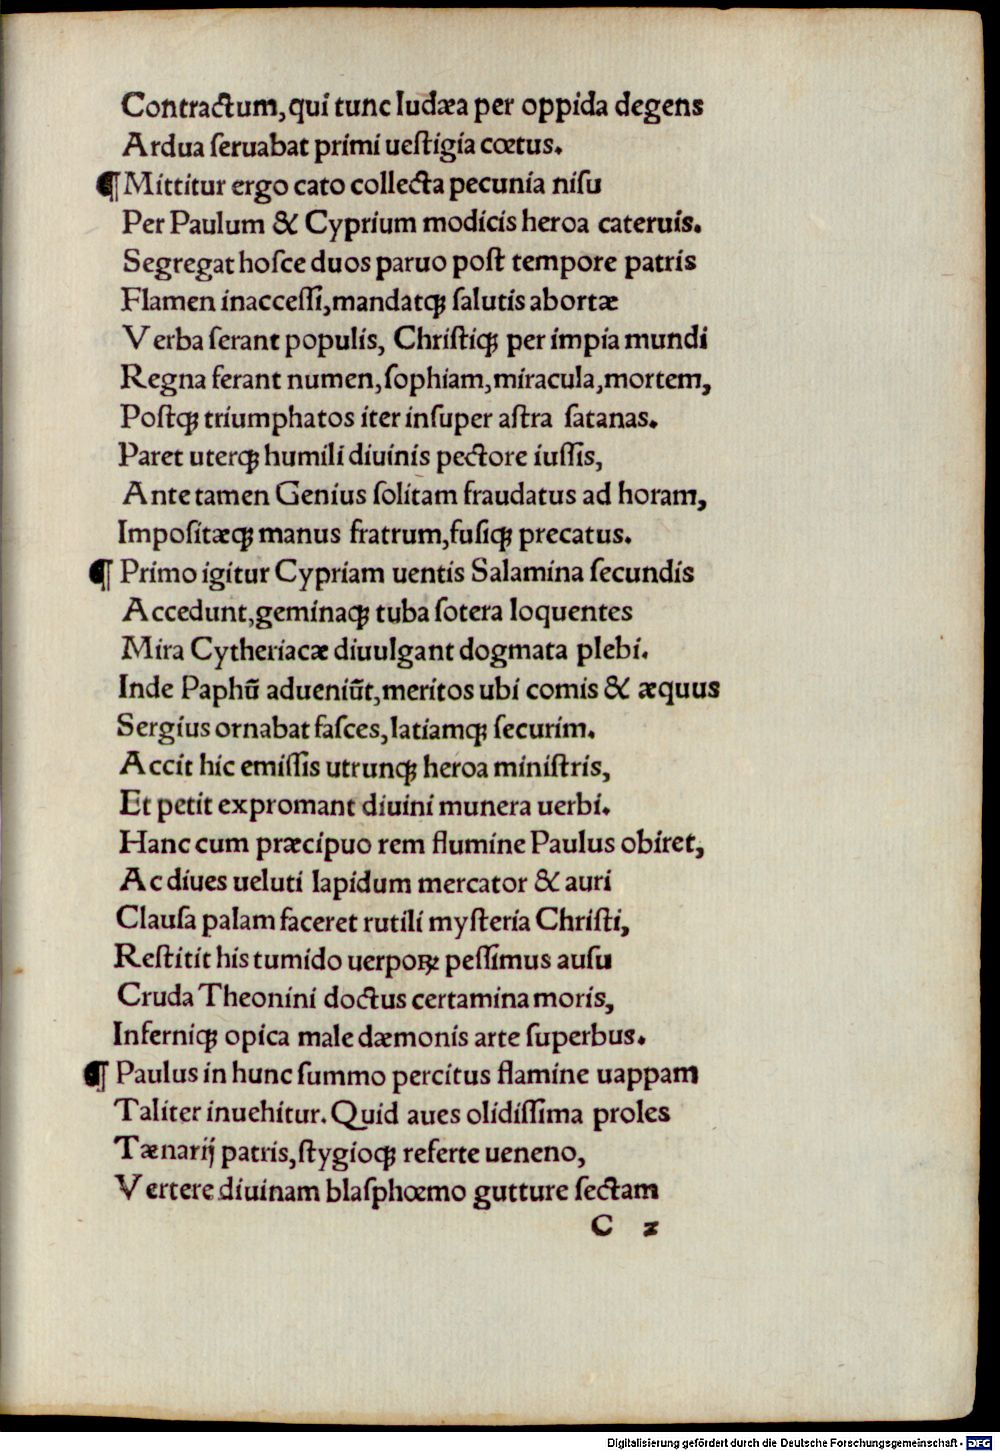 Contractum,qui tunc Iudæa per oppida degens
Ardua ſeruabat primi ueſtigia cœtus.
¶Mittitur ergo cato collecta pecunia niſu
Per Paulum & Cyprium modicis heroa cateruis.
Segregat hoſce duos paruo poſt tempore patris
Flamen inacceſſi,mandatqꝫ ſalutis abortæ
Verba ſerant populis, Chriſtiqꝫ per impia mundi
Regna ferant numen,ſophiam,miracula,mortem,
Poſtqꝫ triumphatos iter inſuper aſtra ſatanas.
Paret uterqꝫ humili diuinis pectore iuſſis,
Ante tamen Genius ſolitam fraudatus ad horam,
Impoſitæqꝫ manus fratrum,fuſiqꝫ precatus.
¶ Primo igitur Cypriam uentis Salamina ſecundis
Accedunt,geminaqꝫ tuba ſotera loquentes
Mira Cytheriacæ diuulgant dogmata plebi.
Inde Paphū adueniūt,meritos ubi comis & æquus
Sergius ornabat faſces,latiamqꝫ ſecurim.
Accit hic emiſſis utrunqꝫ heroa miniſtris,
Et petit expromant diuini munera uerbi.
Hanc cum præcipuo rem flumine Paulus obiret,
Ac diues ueluti lapidum mercator & auri
Clauſa palam faceret rutili myſteria Chriſti,
Reſtitit his tumido uerpoꝝ peſſimus auſu
Cruda Theonini doctus certamina moris,
Inferniqꝫ opica male dæmonis arte ſuperbus.
¶ Paulus in hunc ſummo percitus flamine uappam
Taliter inuehitur. Quid aues olidiſſima proles
Tænarij patris,ſtygioqꝫ referte ueneno,
Vertere diuinam blaſphœmo gutture ſectam
C 2
Digitalisierung gefördert durch die Deutsche Forschungsgemeinschaft - DFG